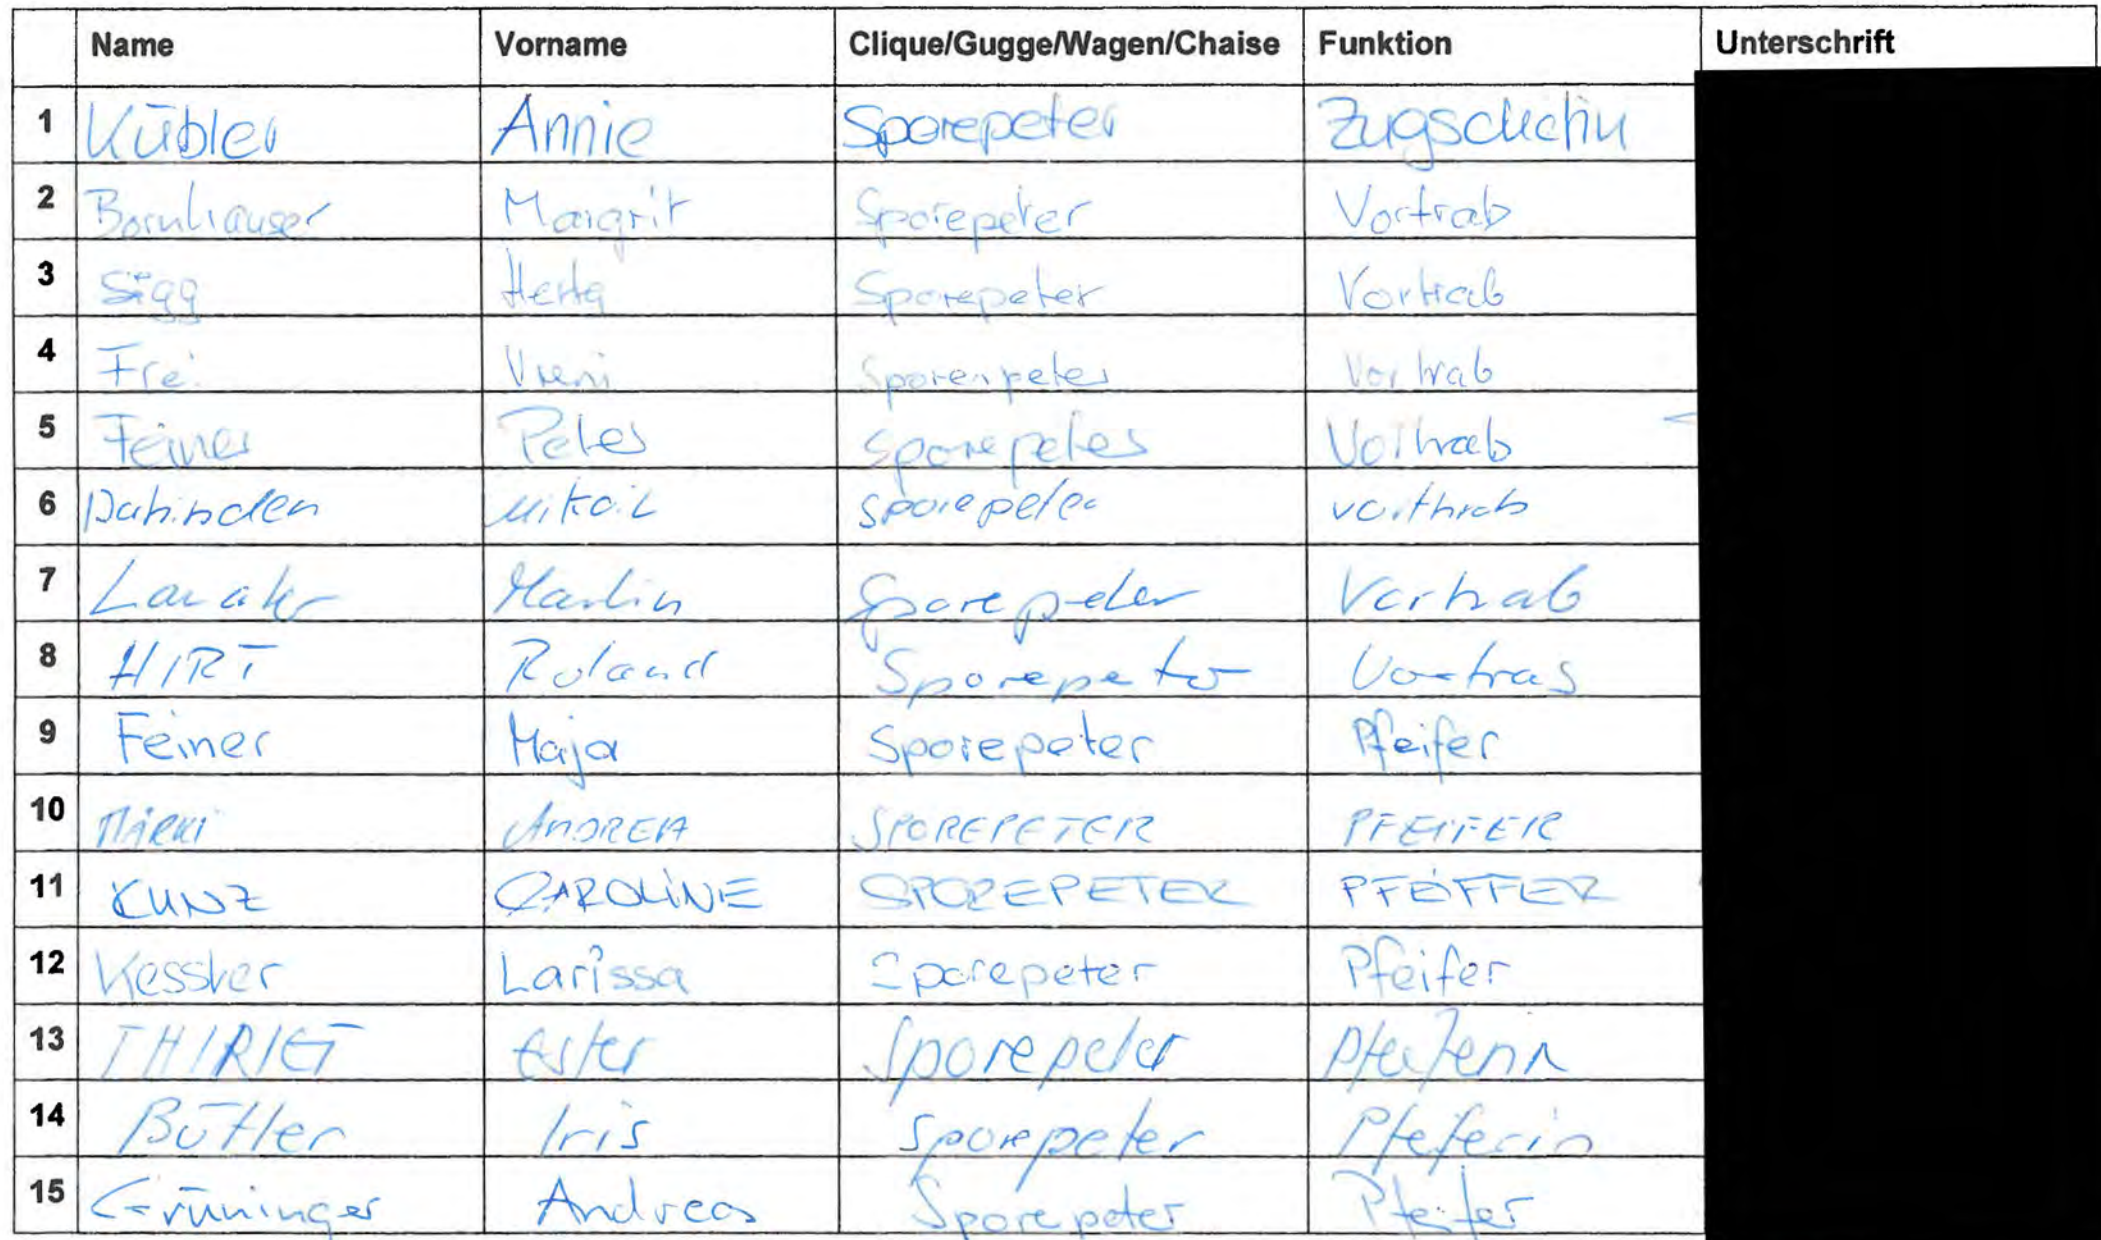 Name Vorname Clique/Gugge/Wagen/Chaise Funktion Unterschrift
1 Kübler Annie Sporepeter Zugschefin
2 Bornhauser Margrit Sporepeter Vortrab
3 Sigg Herta Sporepeter Vortrab
4 Frei Vreni Sporenpeter Vortrab
5 Feiner Peter Sporepeter Vortrab
6 Dahinden Mikail Sporepeter vorthrab
7 Martin Sporepeter Vortrab
8 HIRT Roland Sporepeter Vortrab
9 Feiner Maja Sporepeter Pfeifer
10 MÄRKI ANDREA SPOREPETER PFEIFER
11 KUNZ CAROLINE SPOREPETER PFEIFFER
12 Kessler Larissa Sporepeter Pfeifer
13 THIRIET Ester Sporepeter Pfeiferin
14 Bütler Iris Sporepeter Pfeiferin
15 Grüninger Andreas Sporepeter Pfeifer